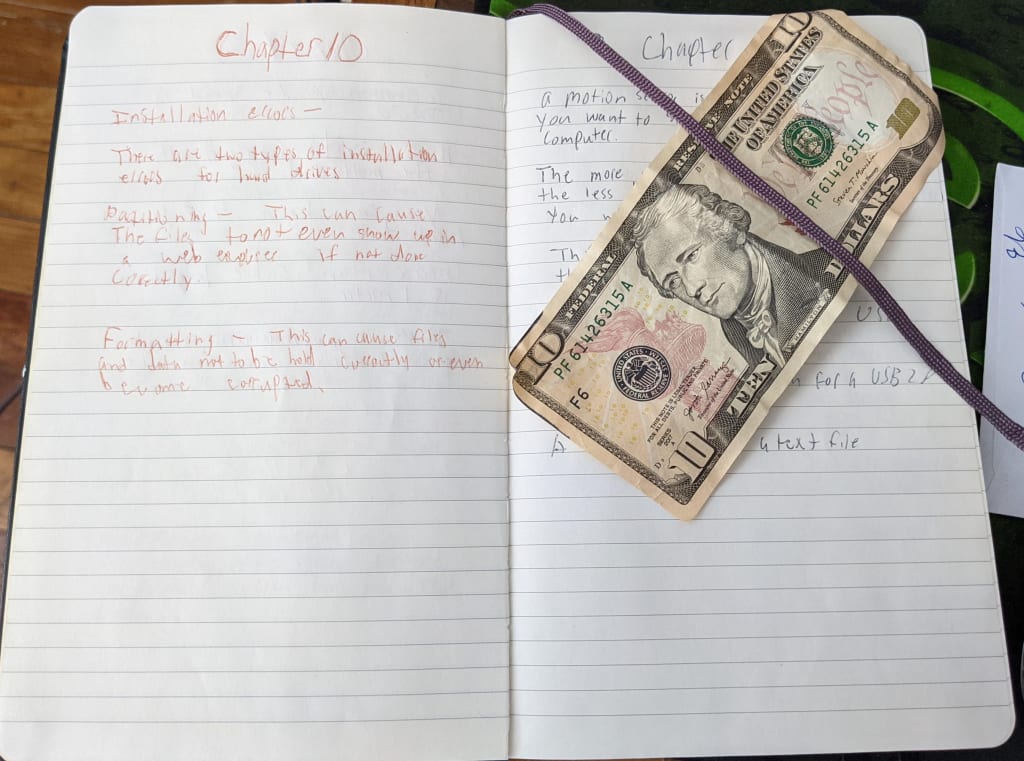 Chapter 10
Installation errors -
There are two types of installation
errors for hard drives
Partitioning - This can cause
The files to not even show up in
a web if not done
Correctly.
Formatting - This can cause files
and data not to be hold correctly or even
become corrupted.
Chapter
a motion is
you want to
computer.
The more
the less
You
Thi
th
US
n for a USB 2
A
a text file
10
THE UNITED STATES
OF AMERICA
PF 61426315 A
FEDERAL
PF 61426315 A
F6
THIS NOTE IS LEGAL TENDER
FOR ALL DEBTS, PUBLIC AND PRIVATE
SERIES
2017
A
10
10